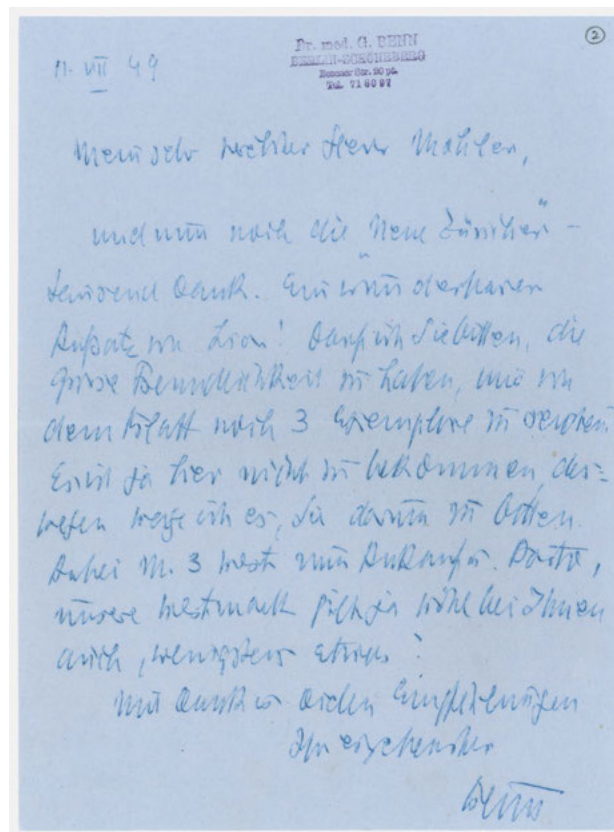 ②
Dr. med. G. BENN
BERLIN-SCHÖNEBERG
Bozener Str. 20 pt.
Tel. 71 60 97
11. VII 49
Mein sehr verehrter Herr Mohler,
und nun noch die "Neue Züricher" –
tausend Dank. Ein wunderbarer
Aufsatz von Lion! Darf ich Sie bitten, die
grosse Freundlichkeit zu haben, mir von
dem Blatt noch 3 Exemplare zu senden.
Es ist ja hier nicht zu bekommen, des=
wegen wage ich es, Sie darum zu bitten.
Anbei M. 3 West zum Ankauf u. Porto,
unsere Westmark gilt ja wohl bei Ihnen
auch, wenigstens etwas!
Mit Dank u vielen Empfehlungen
Ihr ergebenster
Benn